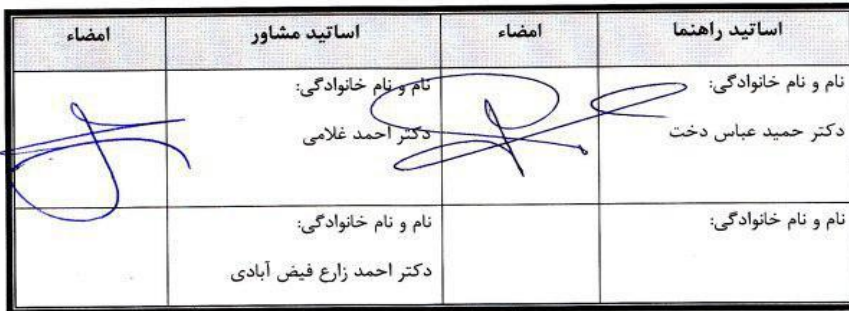 اساتید راهنما	امضاء	اساتید مشاور	امضاء
نام و نام خانوادگی:		نام و نام خانوادگی:
دکتر حمید عباس دخت		دکتر احمد غلامی
نام و نام خانوادگی:		نام و نام خانوادگی:
دکتر احمد زارع فیض آبادی